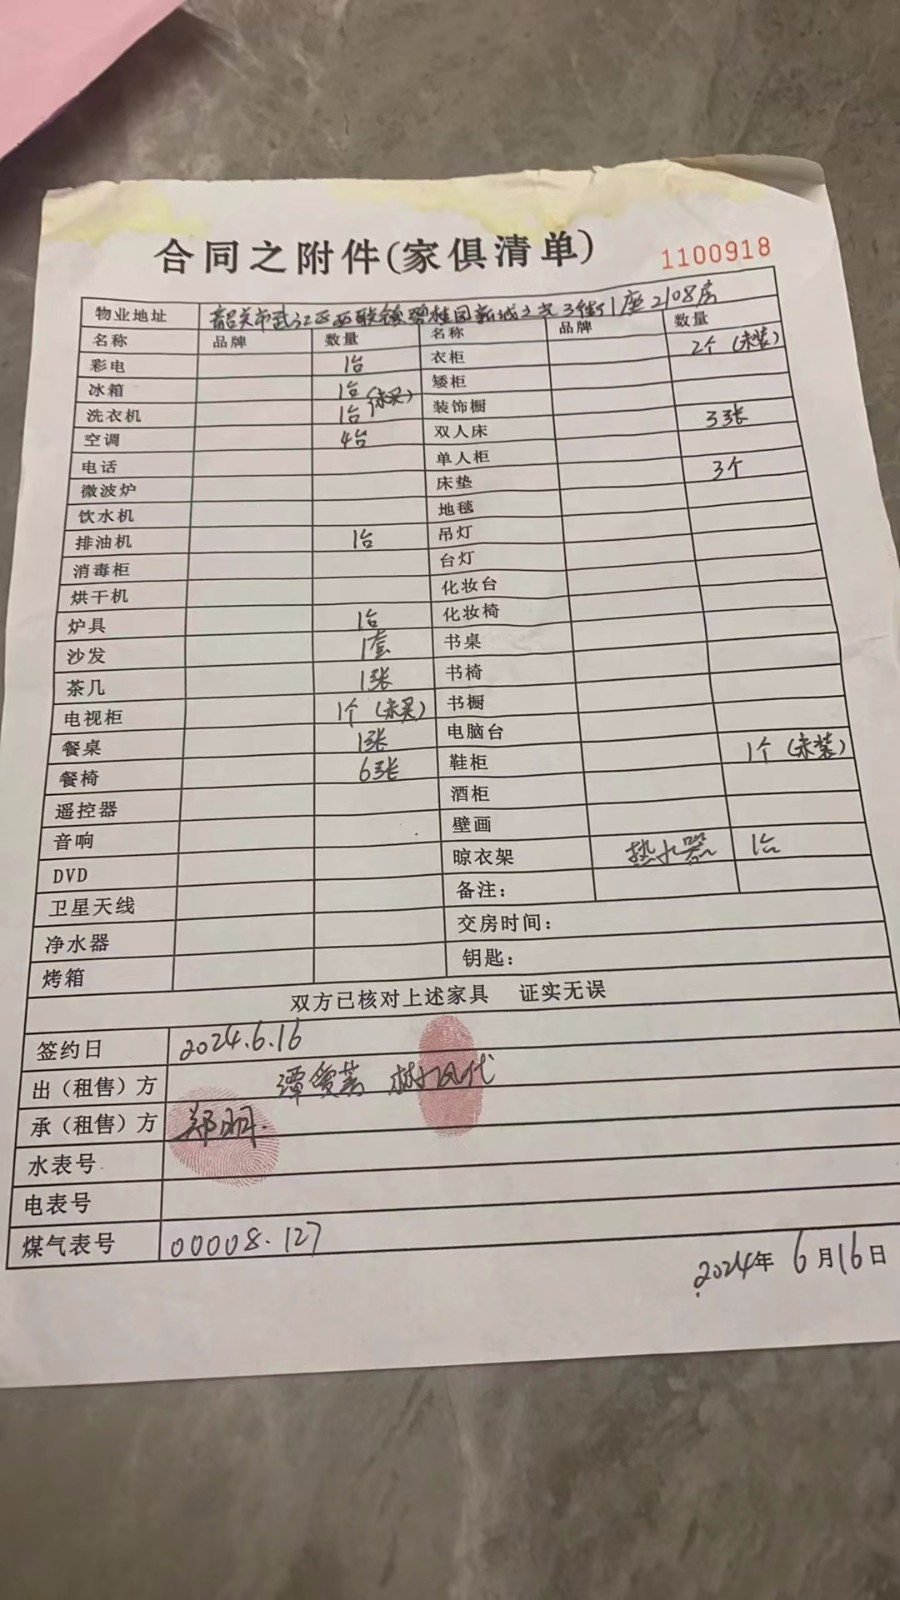 合同之附件(家俱清单) 1100918
物业地址 韶关市武江区西联镇碧桂园新城之光3街1座2108房
名称 品牌 数量 名称 品牌 数量
彩电 1台 衣柜 2个(未装)
冰箱 1台 (未买) 矮柜
洗衣机 1台 装饰橱
空调 4台 双人床 3张
电话 单人柜
微波炉 床垫 3个
饮水机 地毯
排油机 1台 吊灯
消毒柜 台灯
烘干机 化妆台
炉具 1台 化妆椅
沙发 1套 书桌
茶几 1张 书椅
电视柜 1个(未买) 书橱
餐桌 1张 电脑台
餐椅 6张 鞋柜 1个(未装)
遥控器 酒柜
音响 壁画
DVD 晾衣架 热水器 1台
卫星天线 备注:
净水器 交房时间:
烤箱 钥匙:
双方已核对上述家具 证实无误
签约日 2024.6.16
出(租售)方 谭 代
承(租售)方 郑羽.
水表号
电表号
煤气表号 00008.127
2024年 6月16日